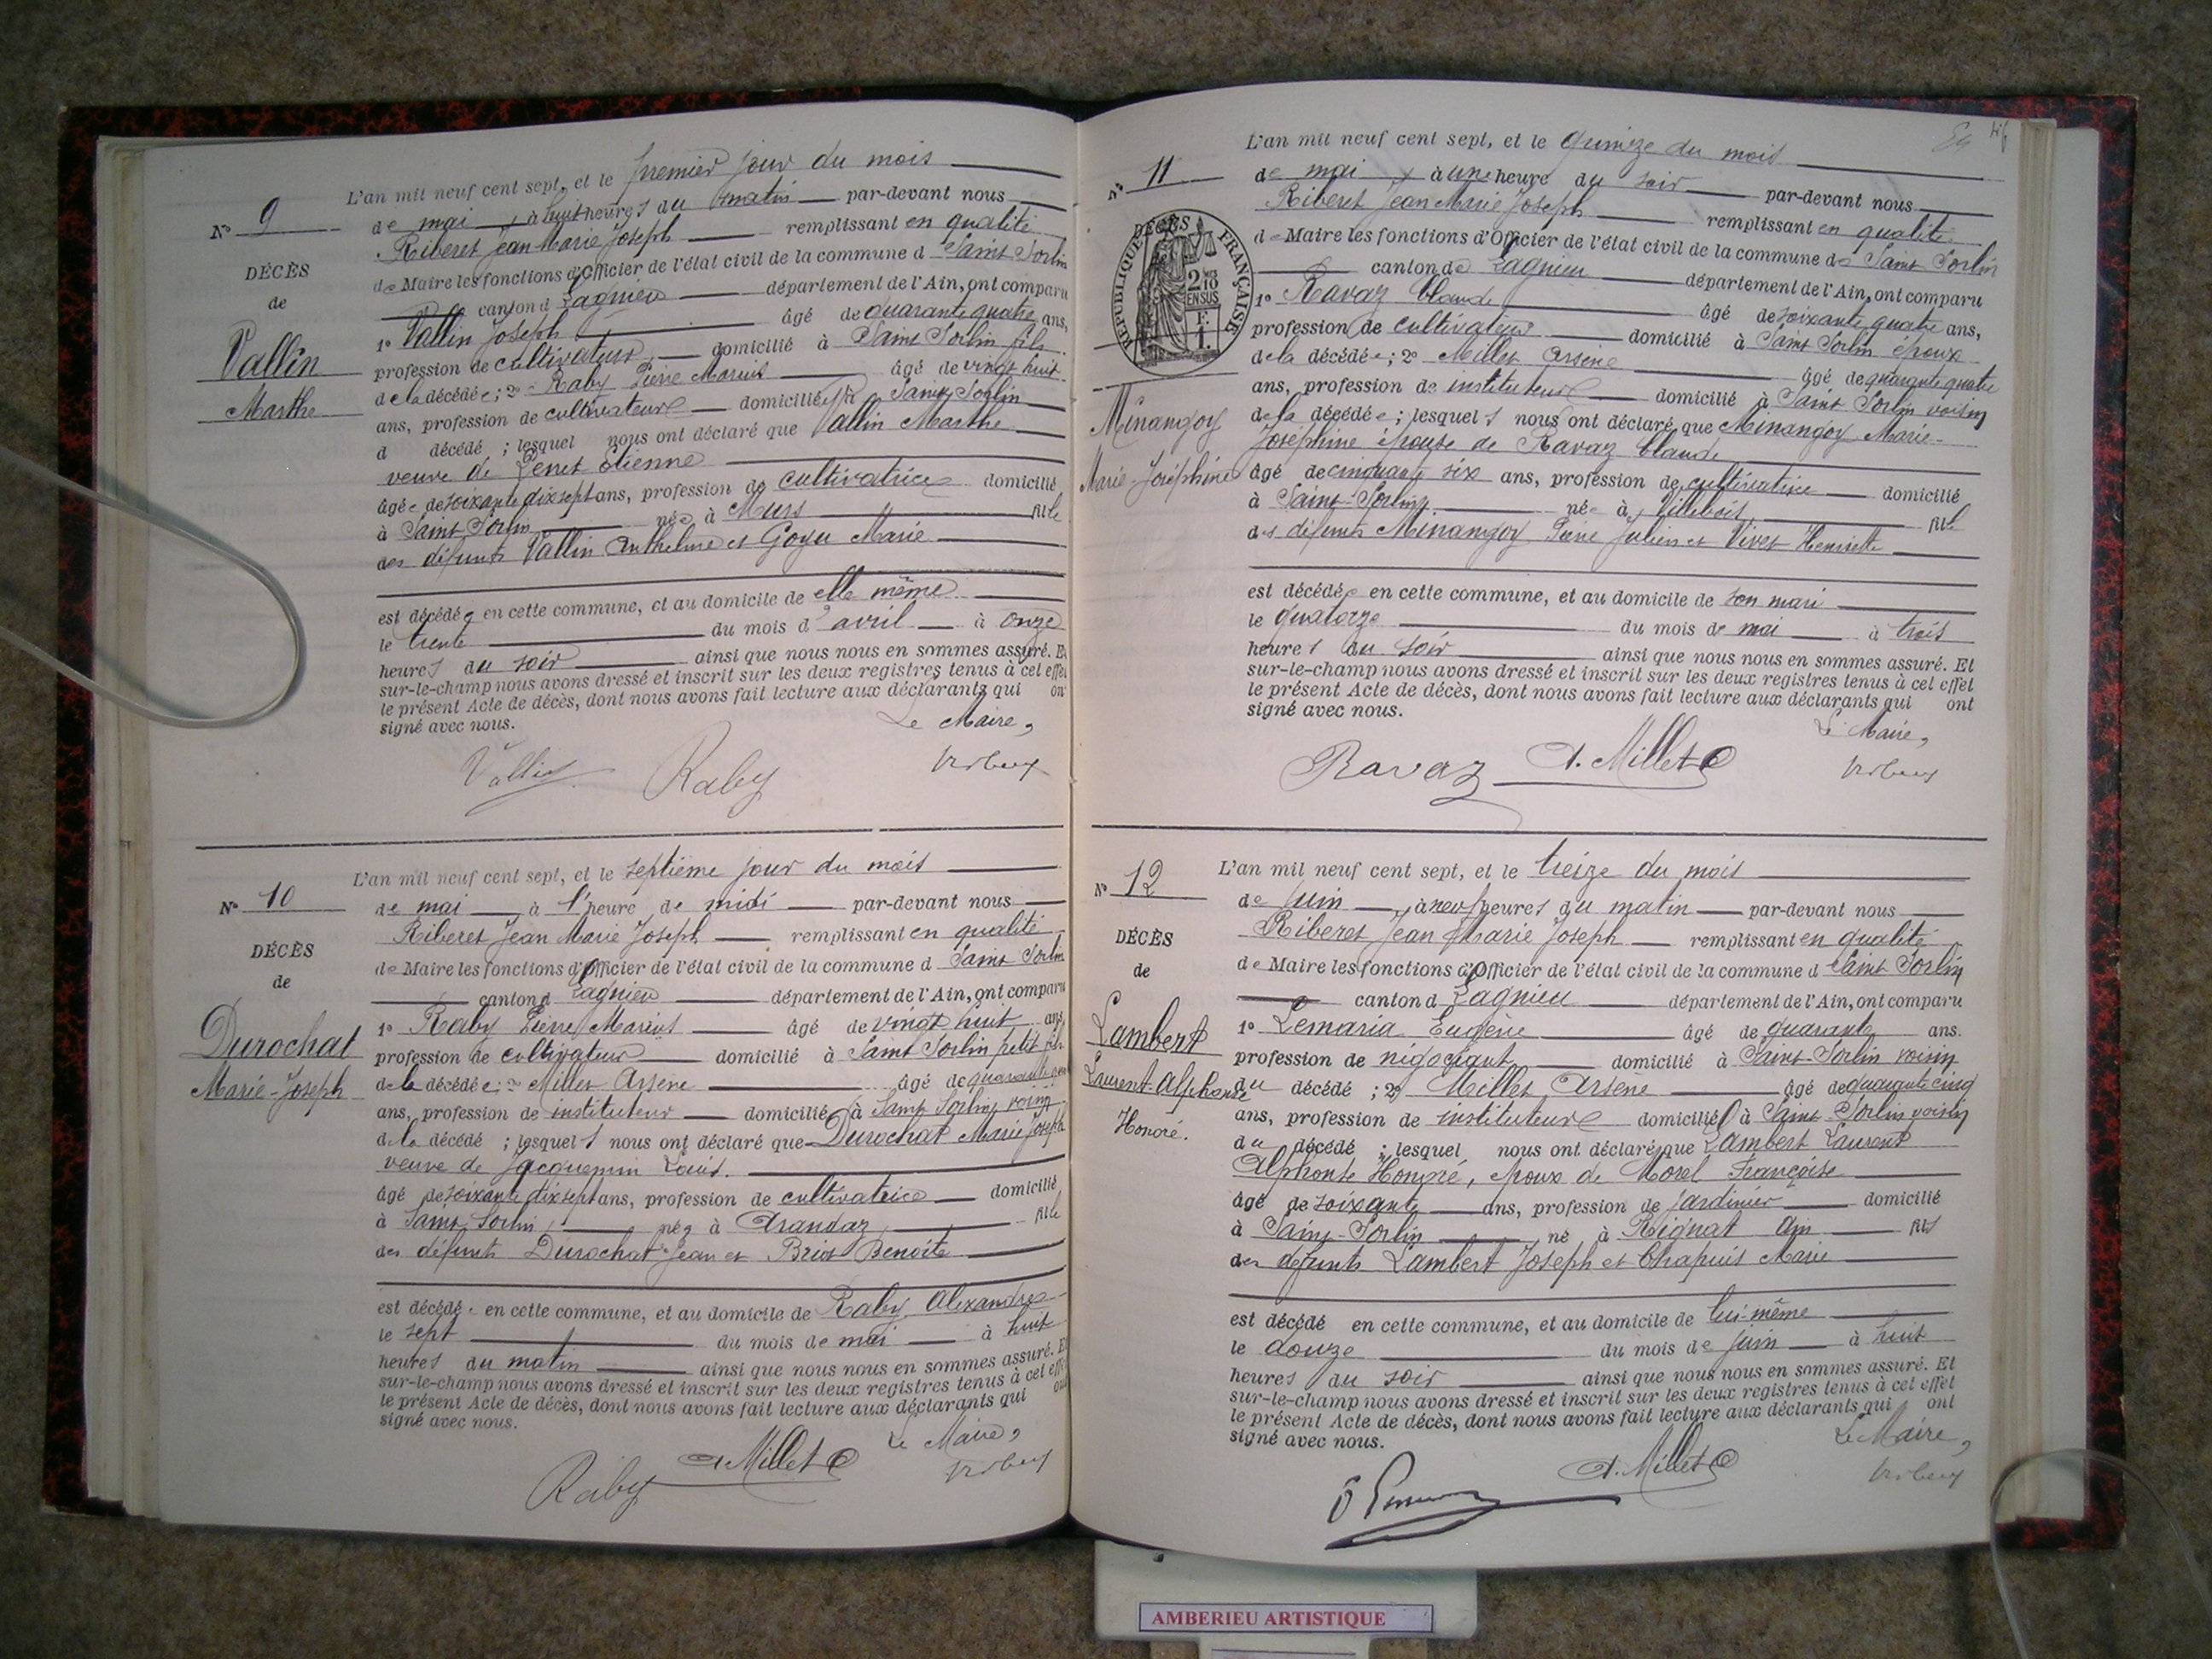 L'an mil neuf cent sept, et le premier jour du mois
N° 9
de mai, à huit heures du matin par-devant nous
Riberet Jean Marie Joseph remplissant en qualité
DÉCÈS
de Maire les fonctions d'Officier de l'état civil de la commune d Saint Sorlin
de
canton d Lagnieu département de l'Ain, ont comparu
1° Vallin Joseph âgé de quarante quatre ans,
Vallin
profession de cultivateur domicilié à Saint Sorlin fils
de la décédée; 2° Raby Pierre Marius âgé de vingt huit
Marthe
ans, profession de cultivateur domicilié à Saint Sorlin
d décédé ; lesquel nous ont déclaré que Vallin Marthe
veuve de Genet Etienne
âgée de soixante dix sept ans, profession de cultivatrice domicilié
à Saint Sorlin née à Murs fille
des défunts Vallin Anthelme et Goyu Marie
est décédée en cette commune, et au domicile de elle même
le trente du mois d'avril à onze
heures du soir ainsi que nous nous en sommes assuré. Et
sur-le-champ nous avons dressé et inscrit sur les deux registres tenus à cet effet
le présent Acte de décès, dont nous avons fait lecture aux déclarants qui on
signé avec nous.
Le Maire,
Vallin Raby
L'an mil neuf cent sept, et le septième jour du mois
N° 10
de mai à l'heure de midi par-devant nous
Riberet Jean Marie Joseph remplissant en qualité
DÉCÈS
de Maire les fonctions d'Officier de l'état civil de la commune d Saint Sorlin
de
canton d Lagnieu département de l'Ain, ont comparu
1° Raby Pierre Marius âgé de vingt huit ans,
Durochat
profession de cultivateur domicilié à Saint Sorlin petit fils
Marie-Joseph
de la décédée; 2° Millet Arsene âgé de quarante
ans, profession de instituteur domicilié à Saint Sorlin voisin
de la décédé ; lesquels nous ont déclaré que Durochat Marie Joseph
veuve de Jacquemin Louis.
âgé de soixante dix sept ans, profession de cultivatrice domicilié
à Saint Sorlin, née à Arandaz fille
des défunts Durochat Jean et Briot Benoite
est décédée en cette commune, et au domicile de Raby Alexandre
le sept du mois de mai à huit
heures du matin ainsi que nous nous en sommes assuré. Et
sur-le-champ nous avons dressé et inscrit sur les deux registres tenus à cet effet
le présent Acte de décès, dont nous avons fait lecture aux déclarants qui ont
signé avec nous.
Le Maire,
Raby A. Millet
L'an mil neuf cent sept, et le quinze du mois
N° 11
de mai, à une heure du soir par-devant nous
Riberet Jean Marie Joseph remplissant en qualité
DÉCÈS
RÉPUBLIQUE FRANÇAISE
2/10 EN SUS
de Maire les fonctions d'Officier de l'état civil de la commune de Saint Sorlin
canton de Lagnieu département de l'Ain, ont comparu
1° Ravaz Claude âgé de soixante quatre ans,
profession de cultivateur domicilié à Saint Sorlin époux
de la décédée; 2° Millet Arsène âgé de quarante quatre
ans, profession de instituteur domicilié à Saint Sorlin voisin
Minangoy
de la décédée; lesquels nous ont déclaré que Minangoy Marie-
Joséphine épouse de Ravaz Claude
Marie-Joséphine
âgé de cinquante six ans, profession de cultivatrice domicilié
à Saint-Sorlin, née à Villebois, fille
des défunts Minangoy Pierre Julien et Vivet Henriette
est décédée en cette commune, et au domicile de son mari
le quatorze du mois de mai à trois
heures du soir ainsi que nous nous en sommes assuré. Et
sur-le-champ nous avons dressé et inscrit sur les deux registres tenus à cet effet
le présent Acte de décès, dont nous avons fait lecture aux déclarants qui ont
signé avec nous.
Le Maire,
Ravaz A. Millet
L'an mil neuf cent sept, et le treize du mois
N° 12
de juin, à neuf heures du matin par-devant nous
Riberet Jean Marie Joseph remplissant en qualité
DÉCÈS
de Maire les fonctions d'Officier de l'état civil de la commune d Saint Sorlin
de
canton d Lagnieu département de l'Ain, ont comparu
1° Lemaria Eugène âgé de quarante ans.
Lambert
profession de négociant domicilié à Saint-Sorlin voisin
Laurent Alphonse
du décédé ; 2° Millet Arsene âgé de quarante cinq
ans, profession de instituteur domicilié à Saint-Sorlin voisin
Honoré.
du décédé ; lesquel nous ont déclaré que Lambert Laurent
Alphonse Honoré, époux de Morel Françoise
âgé de soixante ans, profession de jardinier domicilié
à Saint-Sorlin né à Rignat Ain fils
des défunts Lambert Joseph et Chapuis Marie
est décédé en cette commune, et au domicile de lui-même
le douze du mois de juin à huit
heures du soir ainsi que nous nous en sommes assuré. Et
sur-le-champ nous avons dressé et inscrit sur les deux registres tenus à cet effet
le présent Acte de décès, dont nous avons fait lecture aux déclarants qui ont
signé avec nous.
Le Maire,
A. Millet
AMBERIEU ARTISTIQUE